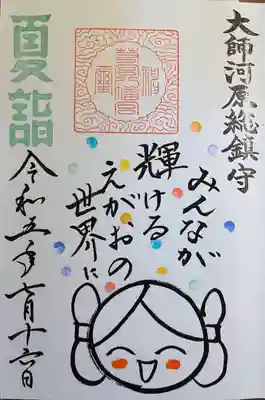 大師河原総鎮守
夏詣
みんなが
輝ける
えがおの
世界に
令和五年七月十六日